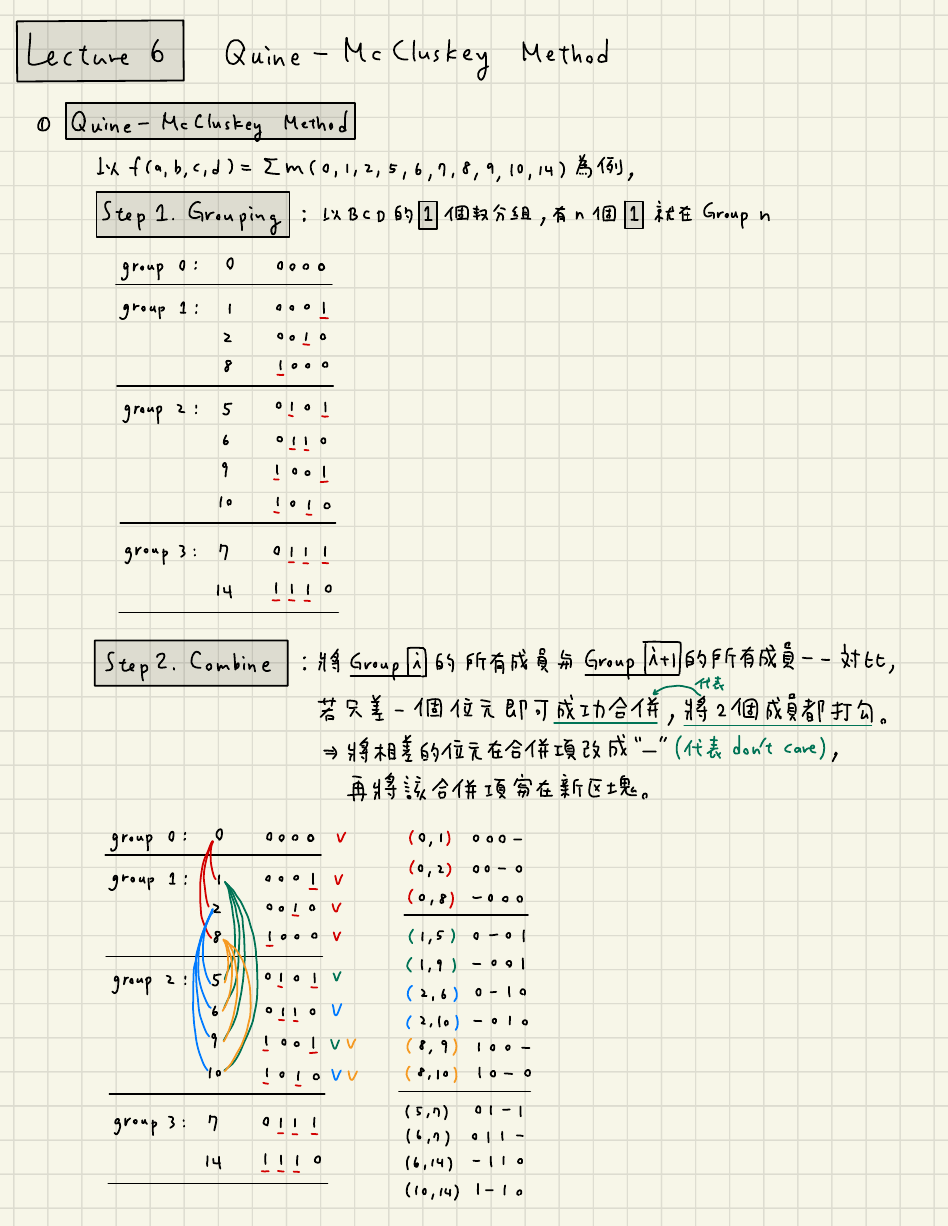 Lecture 6 Quine-McCluskey Method
① Quine-McCluskey Method
以 f(a,b,c,d) = Σm(0,1,2,5,6,7,8,9,10,14) 為例,
Step 1. Grouping : 以BCD的 1 個數分組,有n個 1 就在 Group n
group 0: 0 0000
group 1: 1 0001
2 0010
8 1000
group 2: 5 0101
6 0110
9 1001
10 1010
group 3: 7 0111
14 1110
Step 2. Combine : 將 Group i 的所有成員與 Group i+1 的所有成員一一對比,
代表
若只差一個位元即可成功合併,將2個成員都打勾。
⇒ 將相差的位元在合併項改成"–"(代表 don't care),
再將該合併項寫在新区塊。
group 0: 0 0000 V (0,1) 000-
(0,2) 00-0
group 1: 1 0001 V (0,8) -000
2 0010 V
8 1000 V (1,5) 0-01
(1,9) -001
group 2: 5 0101 V (2,6) 0-10
6 0110 V (2,10) -010
9 1001 V V (8,9) 100-
10 1010 V V (8,10) 10-0
group 3: 7 0111 (5,7) 01-1
(6,7) 011-
14 1110 (6,14) -110
(10,14) 1-10